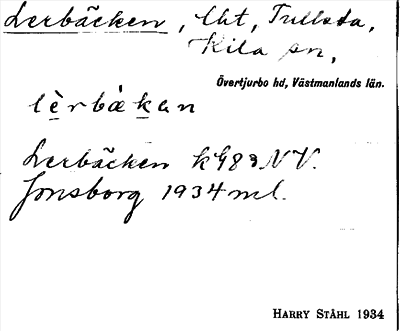 Lerbäcken, lht, Tullsta,
Kila sn,
Övertjurbo hd, Västmanlands län.
lè̱rbàḵan
Lerbäcken k 983 NV.
Jonsborg 1934 ml.
HARRY STÅHL 1934